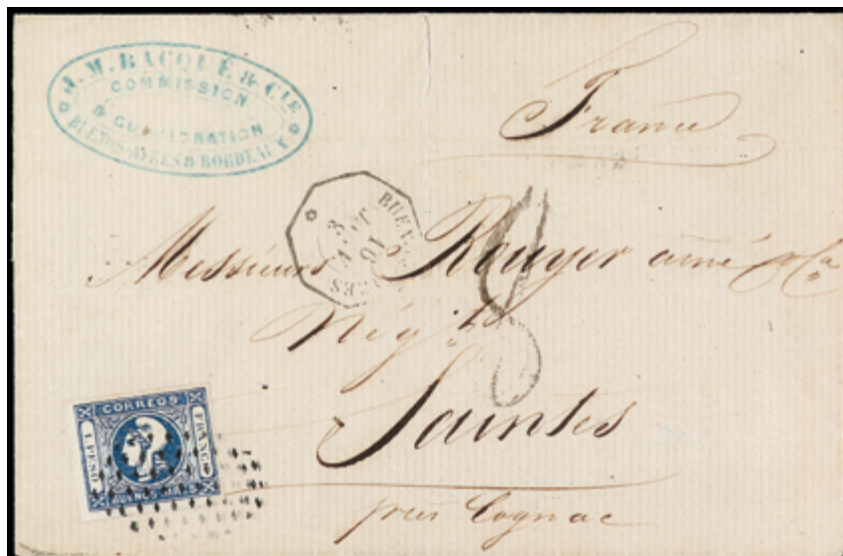 J. M. RACQUE & CIE
COMMISSION
&
BUENOS-AYRES & BORDEAUX
France
3
16
Messieurs Rouyer ainé & Ca
Nég.ts
Saintes
près Cognac
CORREOS
1. PESO
FRANCO
BUENOS AIRES